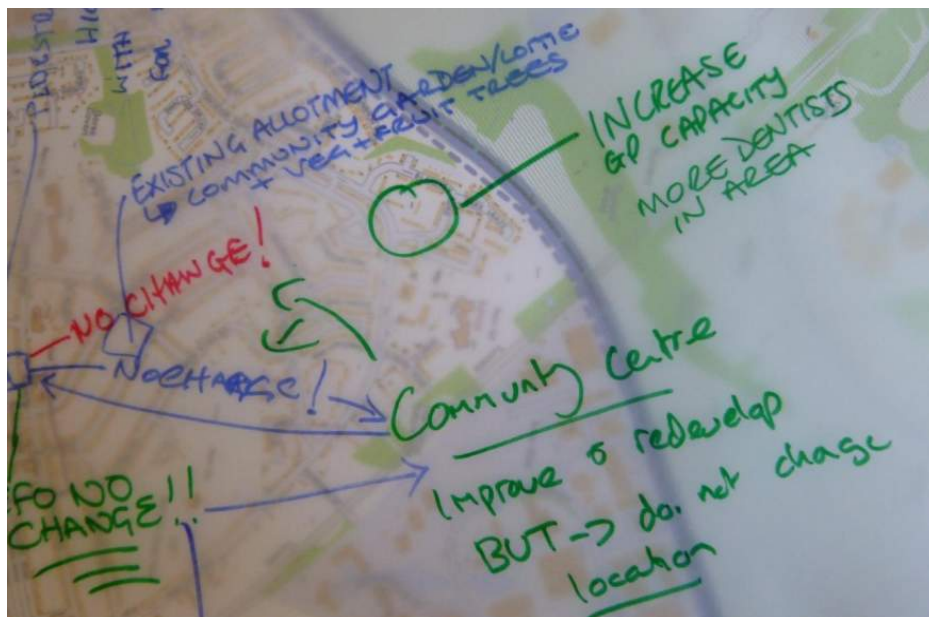 WITH
EXISTING ALLOTMENT
↳ COMMUNITY GARDEN/
+ VEG + FRUIT TREES
INCREASE
GP CAPACITY
MORE DENTISTS
IN AREA
NO CHANGE!
NO CHANGE!
Community Centre
Improve & redevelop
BUT → do not change
location
NO
CHANGE!!